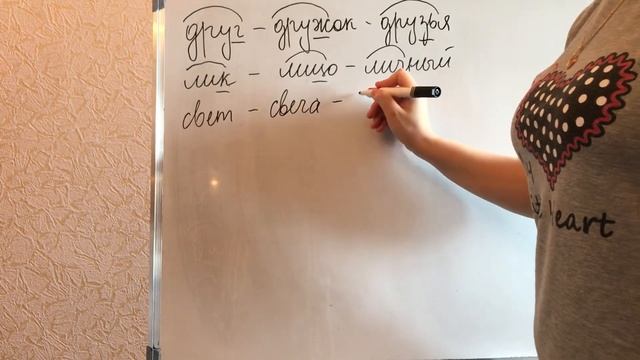 друг - дружок - друзья
лик - лицо - личный
свет - свеча -
heart